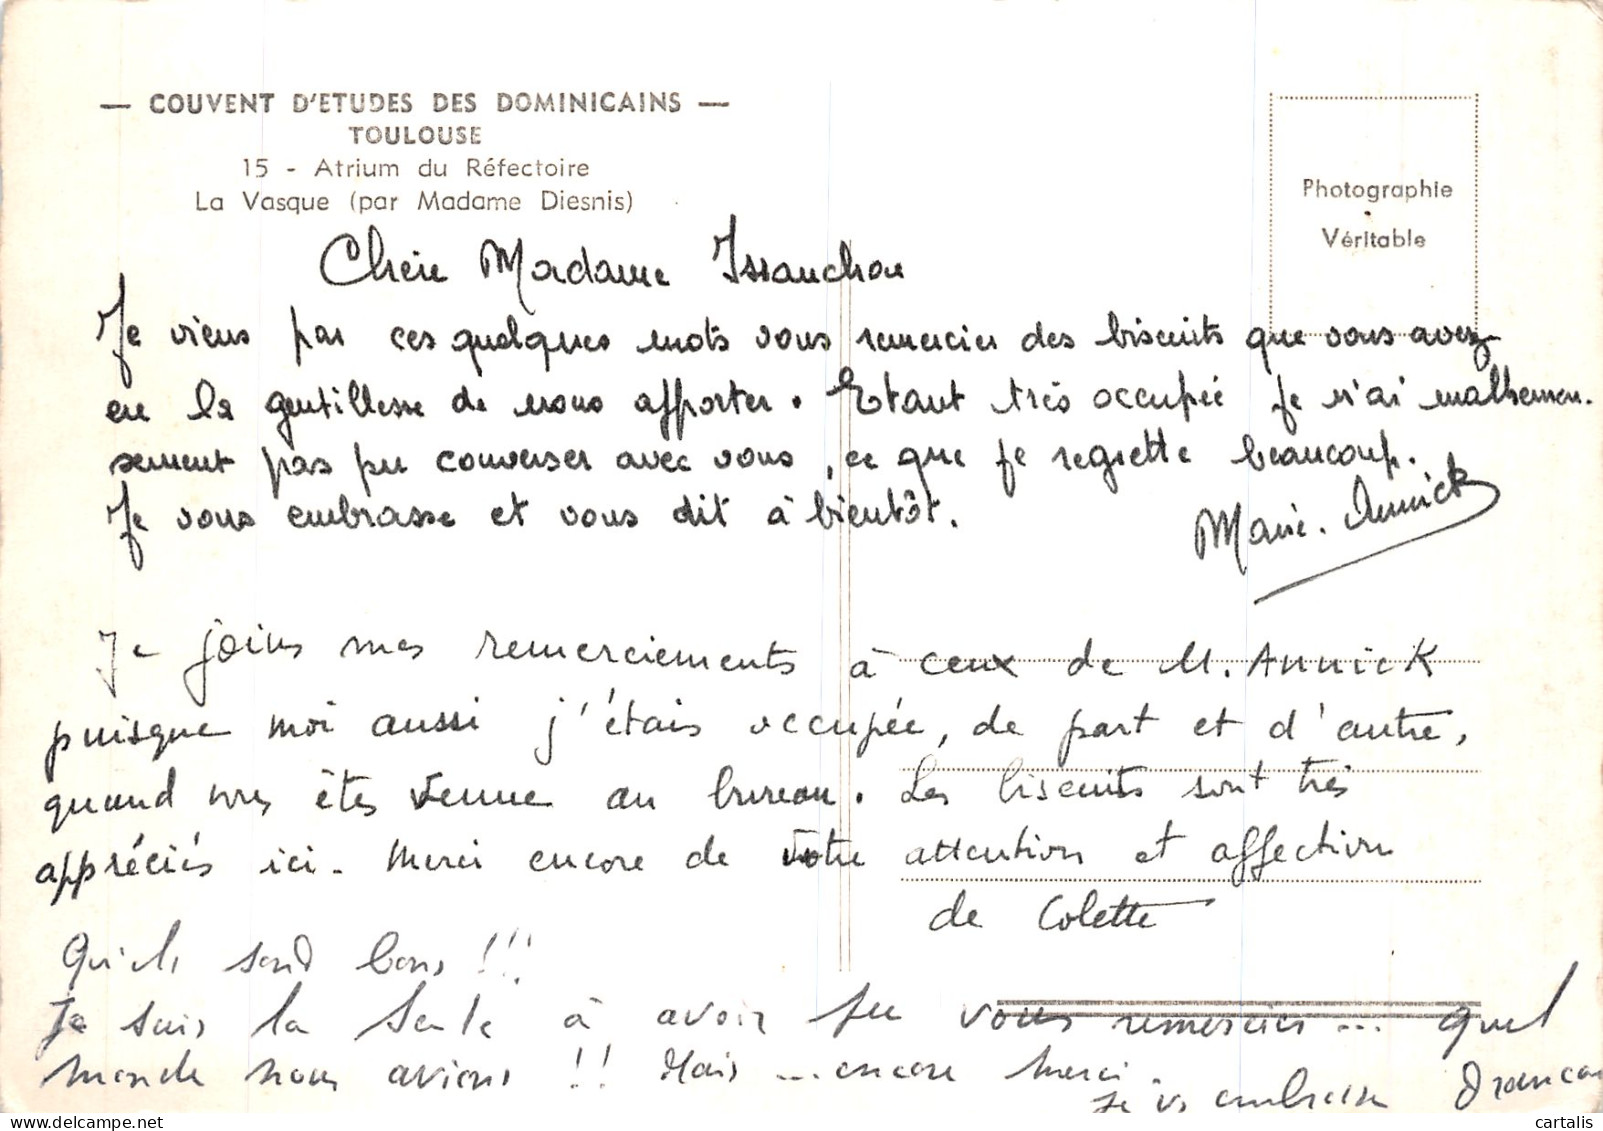 — COUVENT D'ETUDES DES DOMINICAINS —
TOULOUSE
15 - Atrium du Réfectoire
La Vasque (par Madame Diesnis)
Photographie
Véritable
Chère Madame Issanchou
Je viens par ces quelques mots vous remercier des biscuits que vous avez
eu la gentillesse de nous apporter. Etant très occupée je n'ai malheureu-
sement pas pu converser avec vous, ce que je regrette beaucoup.
Je vous embrasse et vous dit à bientôt.
Marie-Annick
Je joins mes remerciements à ceux de M. Annick
puisque moi aussi j'étais occupée, de part et d'autre,
quand vous êtes venue au bureau. Les biscuits sont très
appréciés ici. Merci encore de votre attention et affection
de Colette
Qu'ils sont bons !!!
Je suis la seule à avoir pu vous remercier... quel
monde nous avions !! Mais ... encore merci.
Je vs embrasse
cartalis
www.delcampe.net